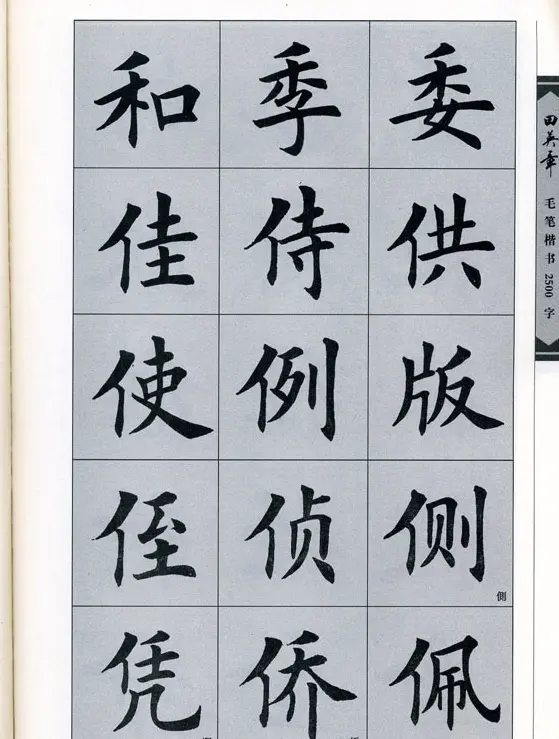 和季委
佳侍供
使例版
侄侦侧
側
凭侨佩
田英章
毛笔楷书2500字